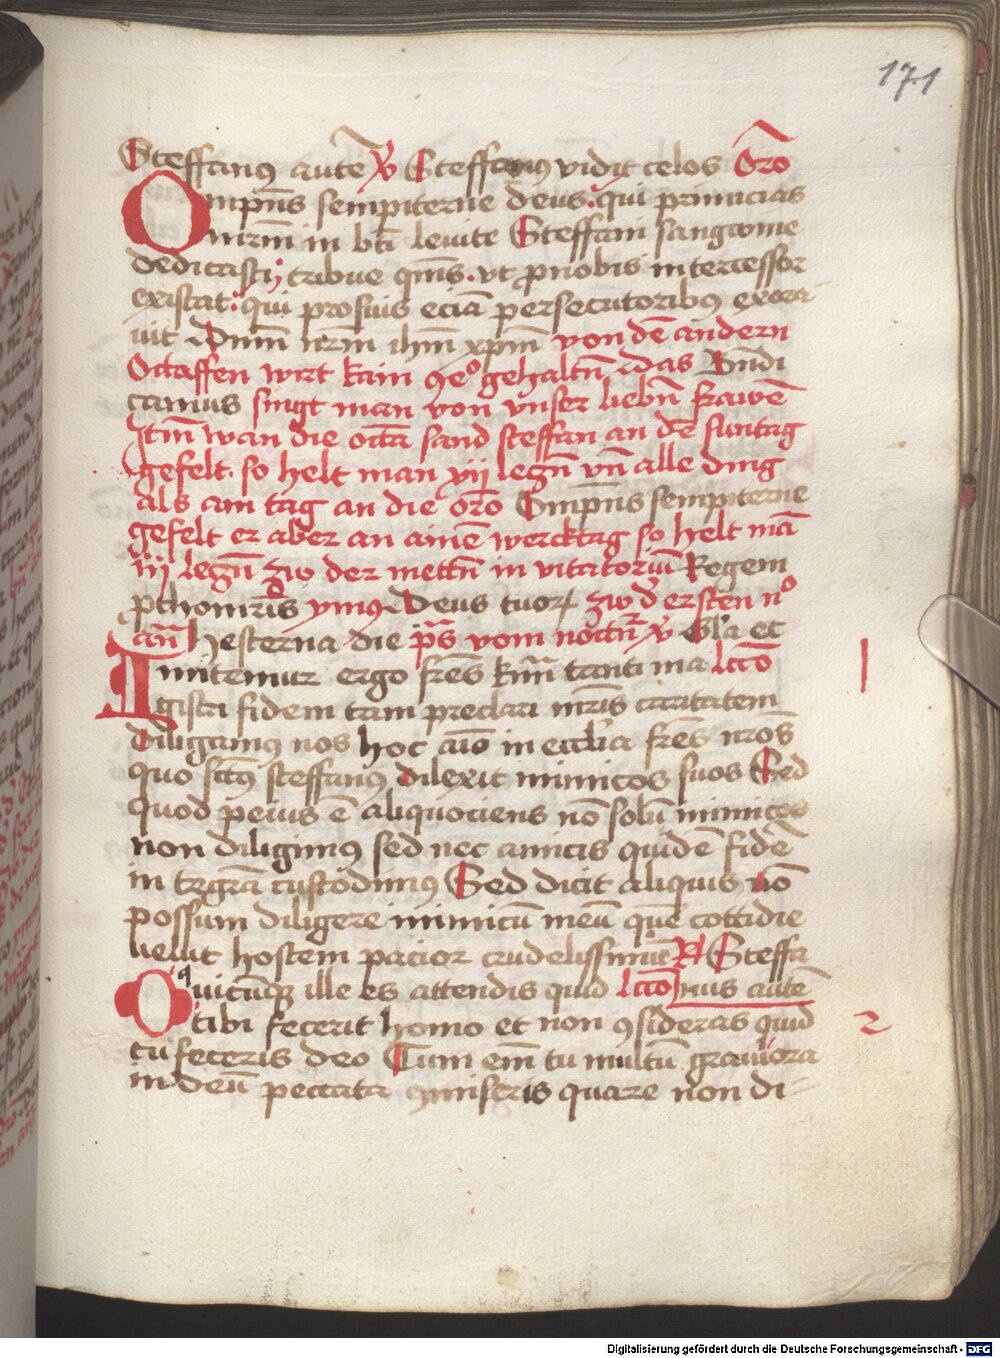 171
Steffanꝰ aute͂ ꝟ Steffanus vidit celos Or̄o
Omp̄ns sempiterne deus. qui primicias
mr̄m in bt̄i leuite Steffani sangwine
dedicasti; tribue qm̄s. vt ꝓnobis intercessor
existat. qui prosuis eciā persecutoribꝯ exora
uit Dnm̄ nr̄m ihm̄ xpm̄ von dē andern
Octaffen wirt kain ꝯeº gehaltn̄ das Bn̄di
camus singt man von vnser liebn̄ frawē
Itm̄ wan die octā sand steffan an dē suntag
gefelt. so helt man xij legn̄ vn̄ alle ding
als am tag an die or̄o Omp̄ns sempiterne
gefelt er aber an ainē wercktag so helt mā
iij legn̄ zw der mettn̄ in vitatoriū Regem
ꝓthomr̄is ymꝯ Deus tuorꝝ zw d' ersten nº
an̄ hesterna die p̄s vom noctn̄ ꝟ Gl'a et
Imitemur ergo fr̄es km̄i tanti ma lcc̄o
gistri fidem tam preclari mr̄is caritatem
Diligamꝰ nos hoc aīo in eccl'ia fr̄es nr̄os
quo sc̄tꝰ steffanꝰ dilexit inimicos suos Sed
quod peius ē aliquociens nō solū inimicos
non diligimꝰ sed nec amicis quidē fidē
in tegrā custodimꝰ Sed dicit aliquis nō
possum diligere inimicū meū quē cottidie
velut hostem pacior crudelissimū ꝶ Steffa
Quicūqꝫ ille es attendis quid lcc̄o nus autē
tibi fecerit homo et non ꝯsideras quid
tu feceris deo Cum em̄ tu multū grauiora
in deū peccata ꝯmiseris quare non di-
1
2
Digitalisierung gefördert durch die Deutsche Forschungsgemeinschaft - DFG